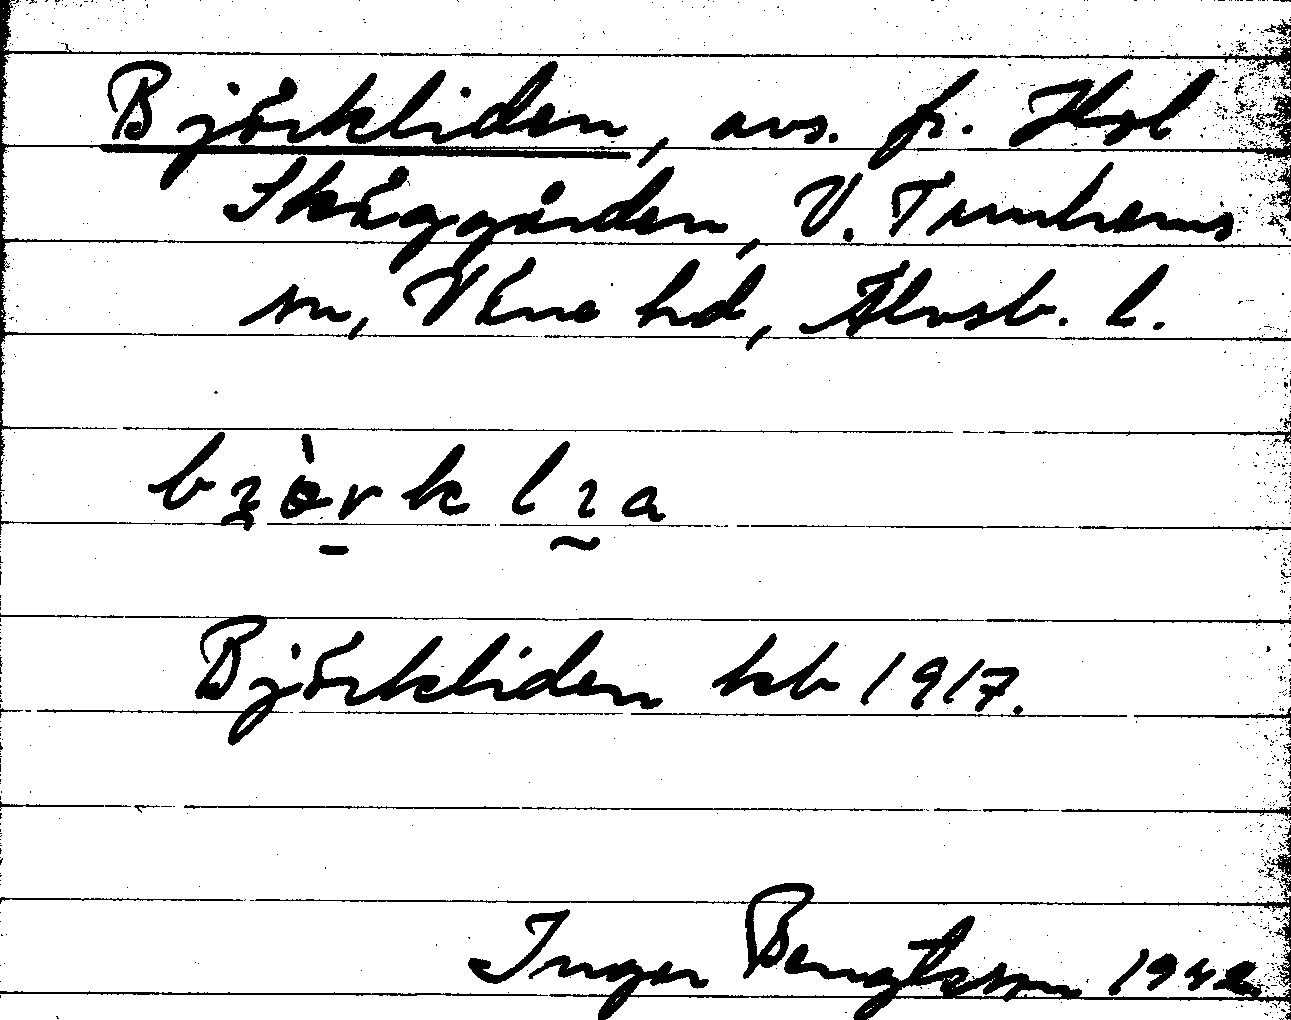 Björkliden, avs. fr. Hol
Skåggården, V. Tunhems
sn, Väne hd, Älvsb. l.
Björkliden kb 1917.
Inger Bengtsson 1942